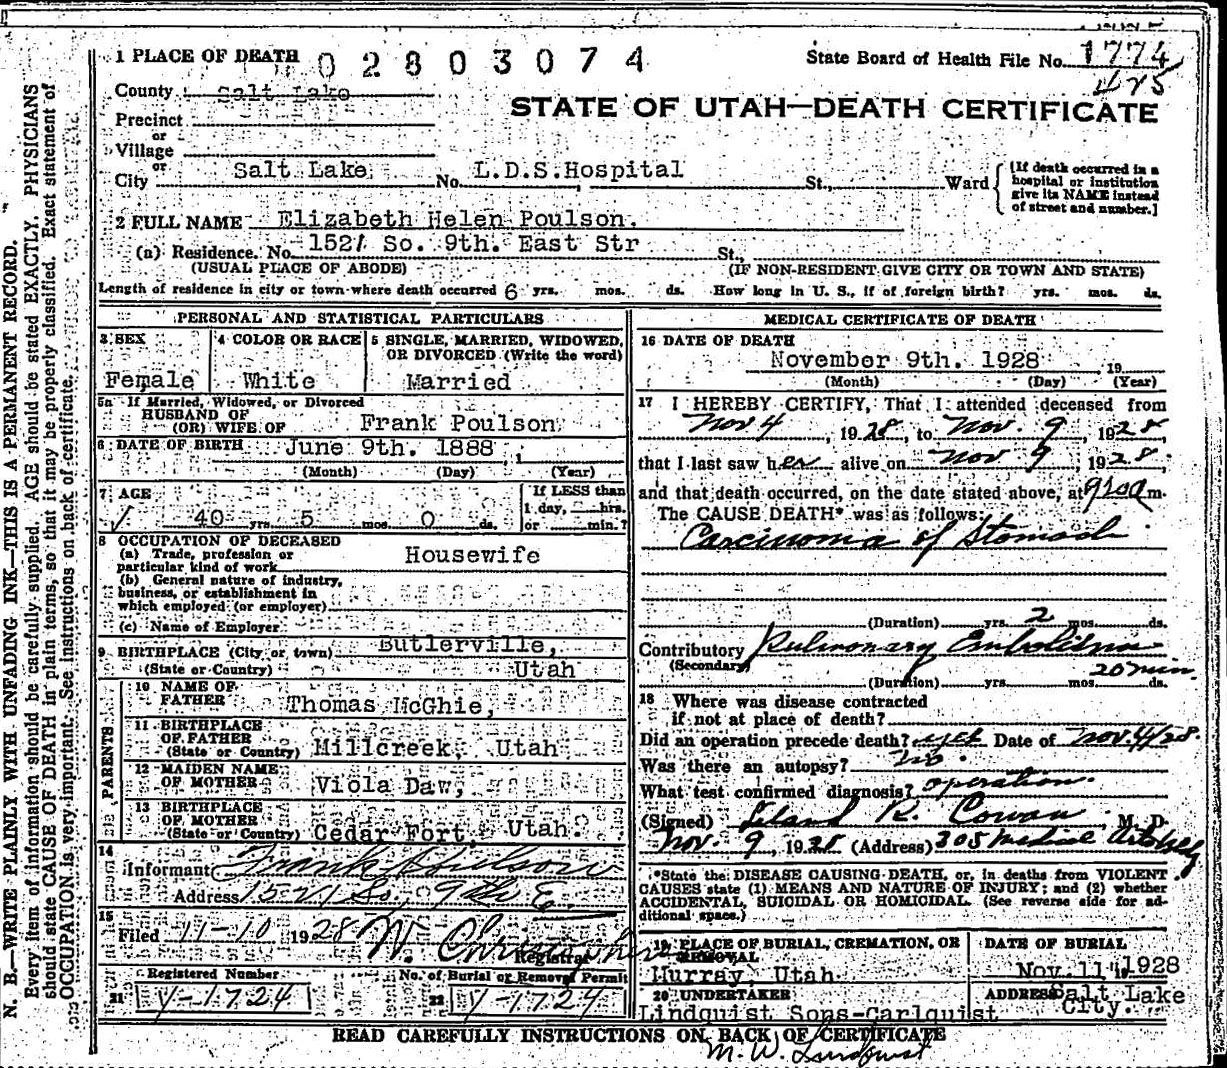 1 PLACE OF DEATH 02803074
State Board of Health File No. 1774
475
County Salt Lake
STATE OF UTAH—DEATH CERTIFICATE
Precinct
or
Village
or
City Salt Lake No. L.D.S. Hospital St., Ward
[If death occurred in a
hospital or institution
give its NAME instead
of street and number.]
2 FULL NAME Elizabeth Helen Poulson.
(a) Residence. No. 1521 So. 9th. East Str St.,
(USUAL PLACE OF ABODE) (IF NON-RESIDENT GIVE CITY OR TOWN AND STATE)
Length of residence in city or town where death occurred 6 yrs. mos. ds. How long in U. S., if of foreign birth? yrs. mos. ds.
PERSONAL AND STATISTICAL PARTICULARS
3 SEX
Female
4 COLOR OR RACE
White
5 SINGLE, MARRIED, WIDOWED,
OR DIVORCED (Write the word)
Married
5a If Married, Widowed, or Divorced
HUSBAND OF
(OR) WIFE OF Frank Poulson
6 DATE OF BIRTH June 9th. 1888
(Month) (Day) (Year)
7 AGE
40 yrs. 5 mos. 0 ds.
If LESS than
1 day, hrs.
or min.?
8 OCCUPATION OF DECEASED
(a) Trade, profession or
particular kind of work Housewife
(b) General nature of industry,
business, or establishment in
which employed (or employer)
(c) Name of Employer
9 BIRTHPLACE (City or town) Butlerville,
(State or Country) Utah
PARENTS
10 NAME OF
FATHER Thomas McGhie,
11 BIRTHPLACE
OF FATHER
(State or Country) Millcreek, Utah
12 MAIDEN NAME
OF MOTHER Viola Daw,
13 BIRTHPLACE
OF MOTHER
(State or Country) Cedar Fort, Utah.
14
Informant Frank Poulson
Address 1521 So. 9th E.
15
Filed 11-10 1928 W. Christopher
Registrar
Registered Number
21 Y-1724
No. of Burial or Removal Permit
22 Y-1724
MEDICAL CERTIFICATE OF DEATH
16 DATE OF DEATH
November 9th. 1928 19
(Month) (Day) (Year)
17 I HEREBY CERTIFY, That I attended deceased from
Nov 4, 1928, to Nov. 9, 1928,
that I last saw her alive on Nov 9, 1928.
and that death occurred, on the date stated above, at 9:00 a m.
The CAUSE DEATH* was as follows:
Carcinoma of Stomach
(Duration) yrs. 2 mos. ds.
Contributory Pulmonary Embolism
(Secondary) 20 min.
(Duration) yrs. mos. ds.
18 Where was disease contracted
if not at place of death?
Did an operation precede death? yes Date of Nov. 4/28
Was there an autopsy? no.
What test confirmed diagnosis? operation.
(Signed) Leland R. Cowan, M. D.
Nov. 9, 1928 (Address) 305 Medical Arts Bldg
*State the DISEASE CAUSING DEATH, or, in deaths from VIOLENT
CAUSES state (1) MEANS AND NATURE OF INJURY; and (2) whether
ACCIDENTAL, SUICIDAL OR HOMICIDAL. (See reverse side for ad-
ditional space.)
19 PLACE OF BURIAL, CREMATION, OR
REMOVAL
Murray, Utah
DATE OF BURIAL
Nov. 11" 1928
20 UNDERTAKER
Lindquist Sons-Carlquist
ADDRESS Salt Lake
City.
READ CAREFULLY INSTRUCTIONS ON BACK OF CERTIFICATE
M. W. Lindquist
N. B.—WRITE PLAINLY WITH UNFADING INK—THIS IS A PERMANENT RECORD.
Every item of information should be carefully supplied. AGE should be stated EXACTLY. PHYSICIANS
should state CAUSE OF DEATH in plain terms, so that it may be properly classified. Exact statement of
OCCUPATION is very important. See instructions on back of certificate.